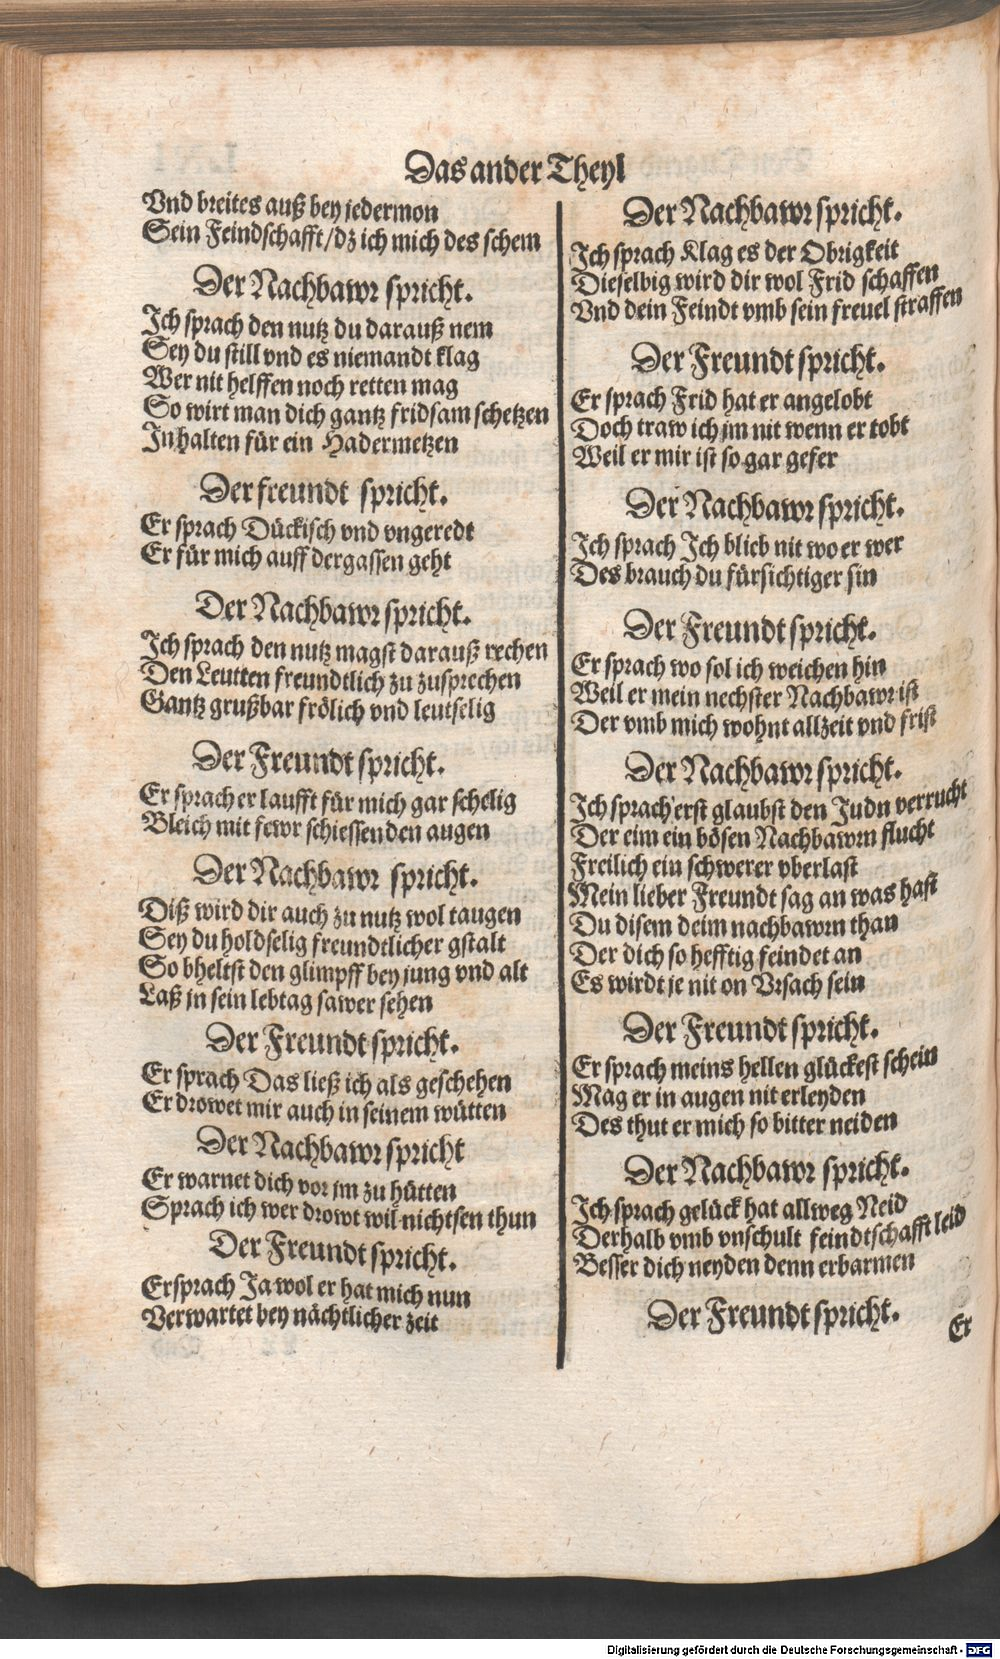 Das ander Theyl
Vnd breites auß bey jedermon
Sein Feindschafft/dz ich mich des schem
Der Nachbawr spricht.
Ich sprach den nutz du darauß nem
Sey du still vnd es niemandt klag
Wer nit helffen noch retten mag
So wirt man dich gantz fridsam schetzen
In halten für ein Hadermetzen
Der freundt spricht.
Er sprach Dückisch vnd vngeredt
Er für mich auff der gassen geht
Der Nachbawr spricht.
Ich sprach den nutz magst darauß rechen
Den Leutten freundtlich zu zusprechen
Gantz grußbar frölich vnd leutselig
Der Freundt spricht.
Er sprach er laufft für mich gar schelig
Bleich mit fewr schiessenden augen
Der Nachbawr spricht.
Diß wird dir auch zu nutz wol taugen
Sey du holdselig freundtlicher gstalt
So bheltst den glimpff bey jung vnd alt
Laß jn sein lebtag sawer sehen
Der Freundt spricht.
Er sprach Das ließ ich als geschehen
Er drowet mir auch in seinem wütten
Der Nachbawr spricht
Er warnet dich vor jm zu hütten
Sprach ich wer drowt wil nichtsen thun
Der Freundt spricht.
Er sprach Ja wol er hat mich nun
Verwartet bey nächtlicher zeit
Der Nachbawr spricht.
Ich sprach Klag es der Obrigkeit
Dieselbig wird dir wol Frid schaffen
Vnd dein Feindt vmb sein freuel straffen
Der Freundt spricht.
Er sprach Frid hat er angelobt
Doch traw ich jm nit wenn er tobt
Weil er mir ist so gar gefer
Der Nachbawr spricht.
Ich sprach Ich blieb nit wo er wer
Des brauch du fürsichtiger sin
Der Freundt spricht.
Er sprach wo sol ich weichen hin
Weil er mein nechster Nachbawr ist
Der vmb mich wohnt allzeit vnd frist
Der Nachbawr spricht.
Ich sprach erst glaubst den Judn verrucht
Der eim ein bösen Nachbawrn flucht
Freilich ein schwerer vberlast
Mein lieber Freundt sag an was hast
Du disem deim nachbawrn than
Der dich so hefftig feindet an
Es wirdt je nit on Vrsach sein
Der Freundt spricht.
Er sprach meins hellen glückest schein
Mag er in augen nit erleyden
Des thut er mich so bitter neiden
Der Nachbawr spricht.
Ich sprach gelück hat allweg Neid
Derhalb vmb vnschult feindtschafft leid
Besser dich neyden denn erbarmen
Der Freundt spricht.
Er
Digitalisierung gefördert durch die Deutsche Forschungsgemeinschaft - DFG